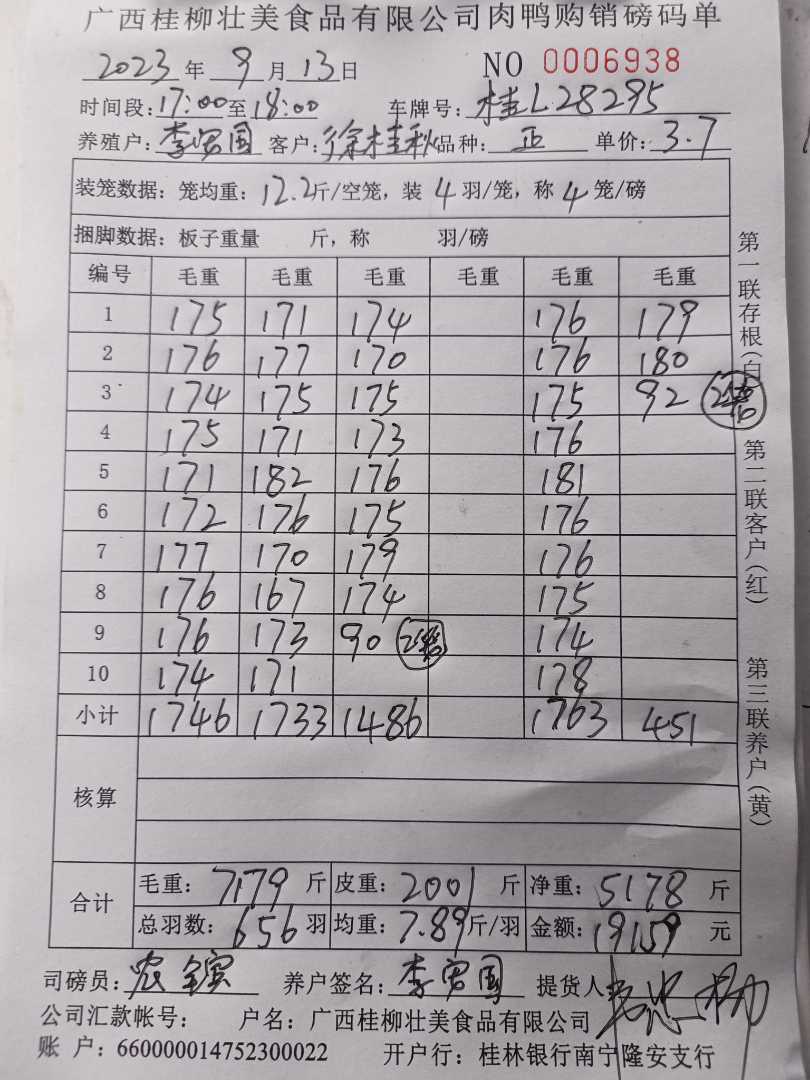 广西桂柳壮美食品有限公司肉鸭购销磅码单
2023年 9月13日 NO 0006938
时间段:17:00至18:00 车牌号:桂L28295
养殖户:李宏国 客户:徐桂秋 品种:正 单价:3.7
装笼数据:笼均重:12.2斤/空笼,装 4 羽/笼,称 4 笼/磅
捆脚数据:板子重量 斤,称 羽/磅
编号 毛重 毛重 毛重 毛重 毛重 毛重
1 175 171 174 176 179
2 176 177 170 176 180
3 174 175 175 175 92 2笼
4 175 171 173 176
5 171 182 176 181
6 172 176 175 176
7 177 170 179 176
8 176 167 174 175
9 176 173 90 2笼 174
10 174 171 178
小计 1746 1733 1486 1763 451
核算
合计 毛重:7179斤 皮重:2001斤 净重:5178斤
总羽数:656羽 均重:7.89斤/羽 金额:19159元
司磅员: 养户签名:李宏国 提货人
公司汇款帐号: 户名:广西桂柳壮美食品有限公司
账 户:660000014752300022 开户行:桂林银行南宁隆安支行
第一联存根(白
第二联客户(红)
第三联养户(黄)